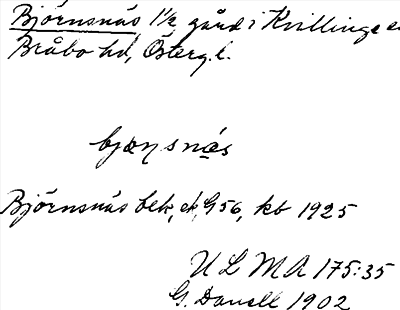 Björnsnäs 1½ gård i Kvillinge
Bråbo hd, Österg. l.
bjœṇsnäs
Björnsnäs bek, G 56, kb 1925
ULMA 175:35
G. Danell 1902